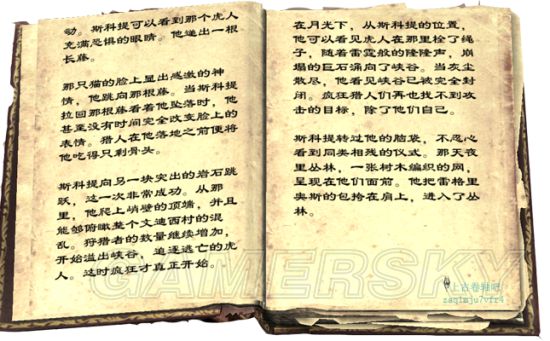 动。斯科提可以看到那个虎人
充满恐惧的眼睛。他递出一根
长藤。
那只猫的脸上显出感激的神
情，他跳向那根藤。当斯科提
拉回那根藤看着他坠落时，他
甚至没有时间完全改变脸上的
表情。猎人在他落地之前便将
他吃得只剩骨头。
斯科提向另一块突出的岩石跳
跃，这一次非常成功。从那
里，他爬上峭壁的顶端，并且
能够俯瞰整个文迪西村的混
乱。狩猎者的数量继续增加，
开始溢出峡谷，追逐逃亡的虎
人。这时疯狂才真正开始。
在月光下，从斯科提的位置，
他可以看见虎人在那里栓了绳
子，随着雷霆般的隆隆声，崩
塌的巨石涌向了峡谷。当灰尘
散尽，他看见峡谷已被完全封
闭。疯狂猎人们再也找不到攻
击的目标，除了他们自己。
斯科提转过他的脑袋，不忍心
看到同类相残的仪式。那天夜
里丛林，一张树木编织的网，
呈现在他们面前。他把雷格里
奥斯的包挎在肩上，进入了丛
林。
GAMERSKY
上古卷轴吧
zaq1mju7vfr4